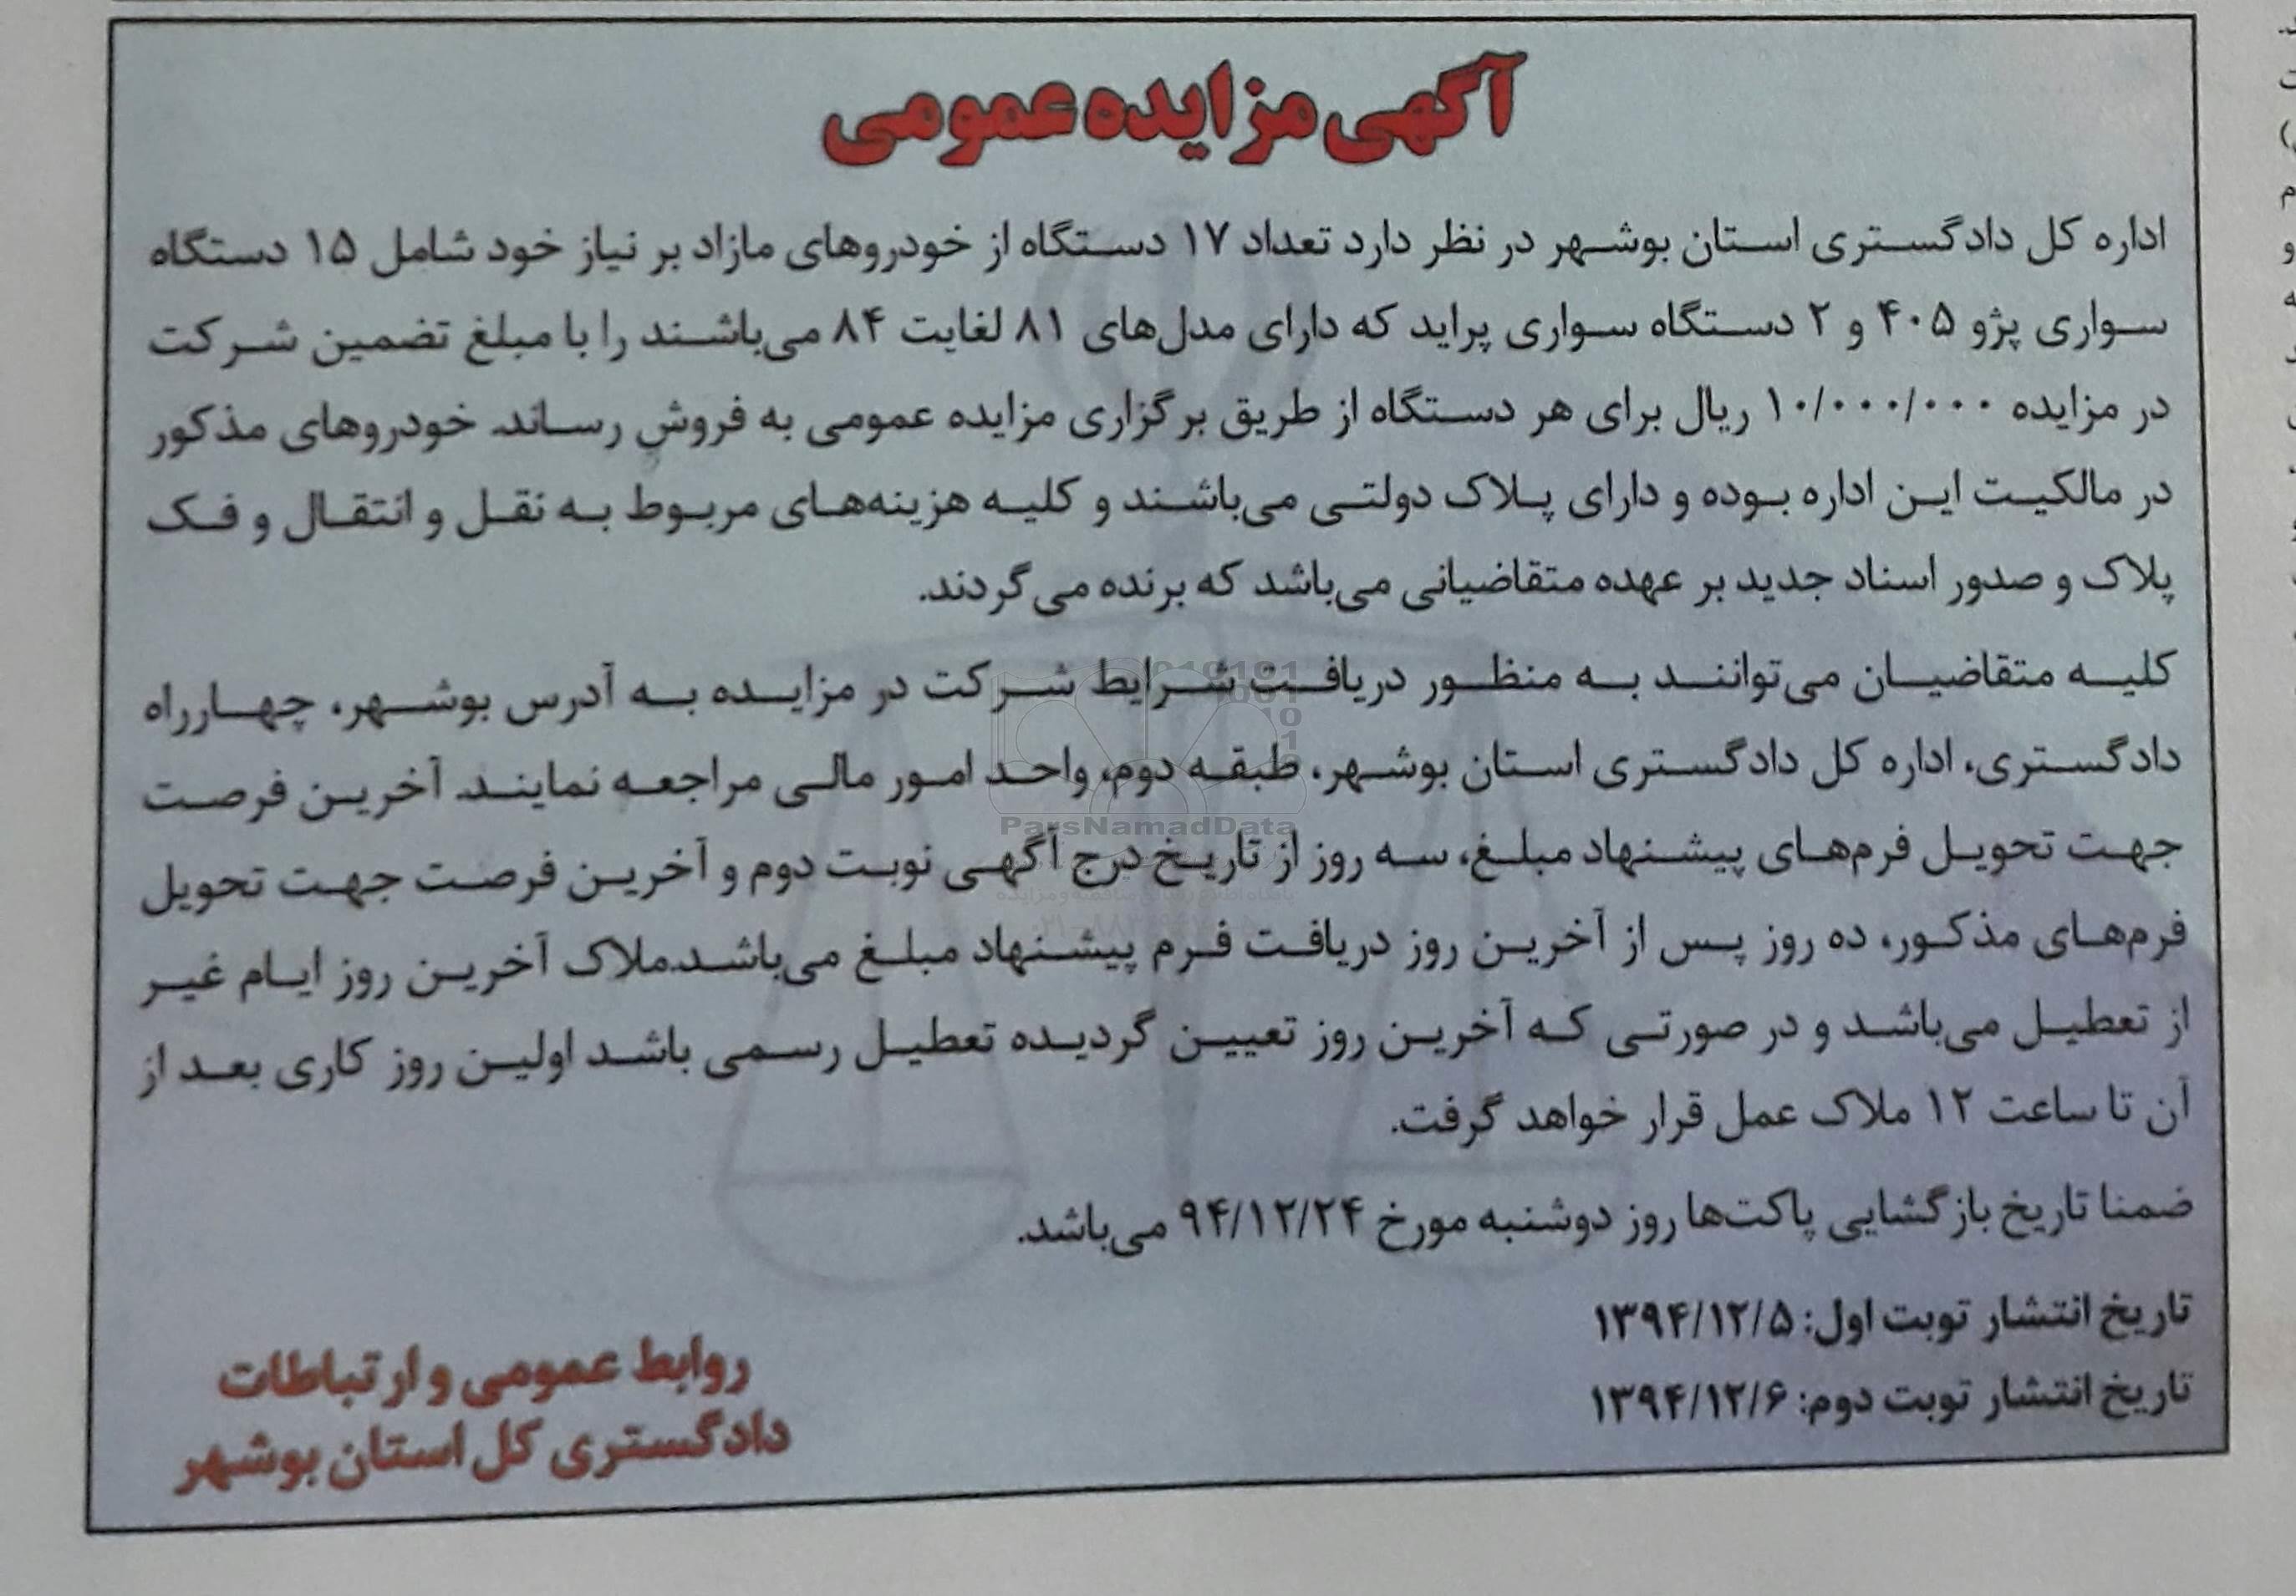 آگهی مزایده عمومی
اداره کل دادگستری استان بوشهر در نظر دارد تعداد ۱۷ دستگاه از خودروهای مازاد بر نیاز خود شامل ۱۵ دستگاه
سواری پژو ۴۰۵ و ۲ دستگاه سواری پراید که دارای مدل‌های ۸۱ لغایت ۸۴ می‌باشند را با مبلغ تضمین شرکت
در مزایده ۱۰/۰۰۰/۰۰۰ ریال برای هر دستگاه از طریق برگزاری مزایده عمومی به فروش رساند. خودروهای مذکور
در مالکیت این اداره بوده و دارای پلاک دولتی می‌باشند و کلیه هزینه‌های مربوط به نقل و انتقال و فک
پلاک و صدور اسناد جدید بر عهده متقاضیانی می‌باشد که برنده می‌گردند.
کلیه متقاضیان می‌توانند به منظور دریافت شرایط شرکت در مزایده به آدرس بوشهر، چهارراه
دادگستری، اداره کل دادگستری استان بوشهر، طبقه دوم، واحد امور مالی مراجعه نمایند. آخرین فرصت
جهت تحویل فرم‌های پیشنهاد مبلغ، سه روز از تاریخ درج آگهی نوبت دوم و آخرین فرصت جهت تحویل
فرم‌های مذکور، ده روز پس از آخرین روز دریافت فرم پیشنهاد مبلغ می‌باشد.ملاک آخرین روز ایام غیر
از تعطیل می‌باشد و در صورتی که آخرین روز تعیین گردیده تعطیل رسمی باشد اولین روز کاری بعد از
آن تا ساعت ۱۲ ملاک عمل قرار خواهد گرفت.
ضمنا تاریخ بازگشایی پاکت‌ها روز دوشنبه مورخ ۹۴/۱۲/۲۴ می‌باشد.
تاریخ انتشار نوبت اول: ۱۳۹۴/۱۲/۵
تاریخ انتشار نوبت دوم: ۱۳۹۴/۱۲/۶
روابط عمومی و ارتباطات
دادگستری کل استان بوشهر
ParsNamadData